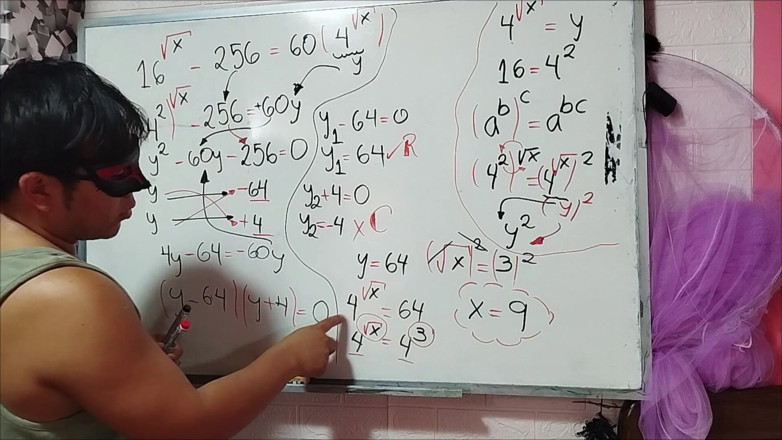 16^√x - 256 = 60(4^√x)
y
4²)^√x - 256 = +60y
y² - 60y - 256 = 0
y -64
y +4
4y - 64 = -60y
(y - 64)(y + 4) = 0
y₁ - 64 = 0
y₁ = 64 ✓ R
y₂ + 4 = 0
y₂ = -4 x C
y = 64
4^√x = 64
4^√x = 4^3
4^√x = y
16 = 4²
(a^b)^c = a^bc
(4²)^√x = (4^√x)²
(y)²
y²
(√x)² = (3)²
x = 9